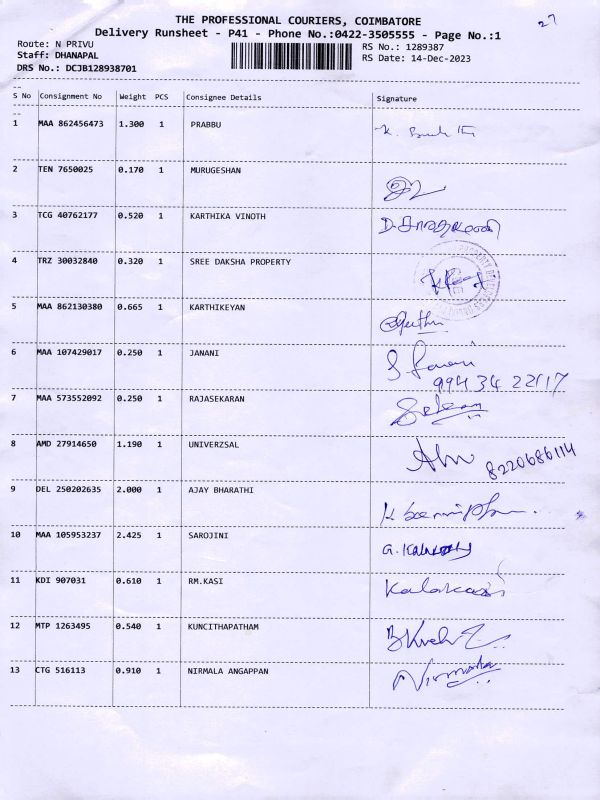 27
THE PROFESSIONAL COURIERS, COIMBATORE
Delivery Runsheet - P41 - Phone No.:0422-3505555 - Page No.:1
Route: N PRIVU
RS No.: 1289387
Staff: DHANAPAL
RS Date: 14-Dec-2023
DRS No.: DCJB128938701
S No Consignment No Weight PCS Consignee Details Signature
1 MAA 862456473 1.300 1 PRABBU
2 TEN 7650025 0.170 1 MURUGESHAN
3 TCG 40762177 0.520 1 KARTHIKA VINOTH
4 TRZ 30032840 0.320 1 SREE DAKSHA PROPERTY
5 MAA 862130380 0.665 1 KARTHIKEYAN
6 MAA 107429017 0.250 1 JANANI
99434 22117
7 MAA 573552092 0.250 1 RAJASEKARAN
8 AMD 27914650 1.190 1 UNIVERZSAL
8220686114
9 DEL 250202635 2.000 1 AJAY BHARATHI
10 MAA 105953237 2.425 1 SAROJINI
11 KDI 907031 0.610 1 RM.KASI
12 MTP 1263495 0.540 1 KUNCITHAPATHAM
13 CTG 516113 0.910 1 NIRMALA ANGAPPAN Nirmala